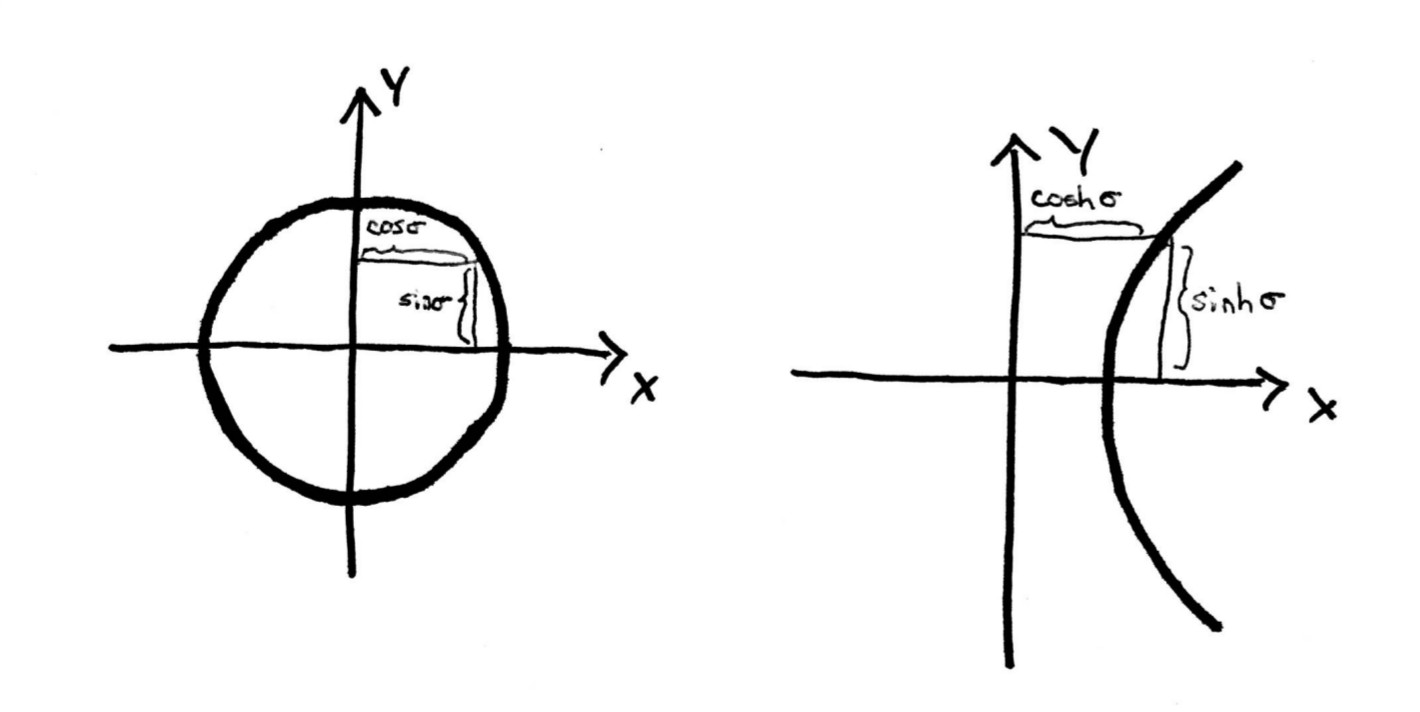 Y
cosσ
sinσ
X
Y
coshσ
sinhσ
X